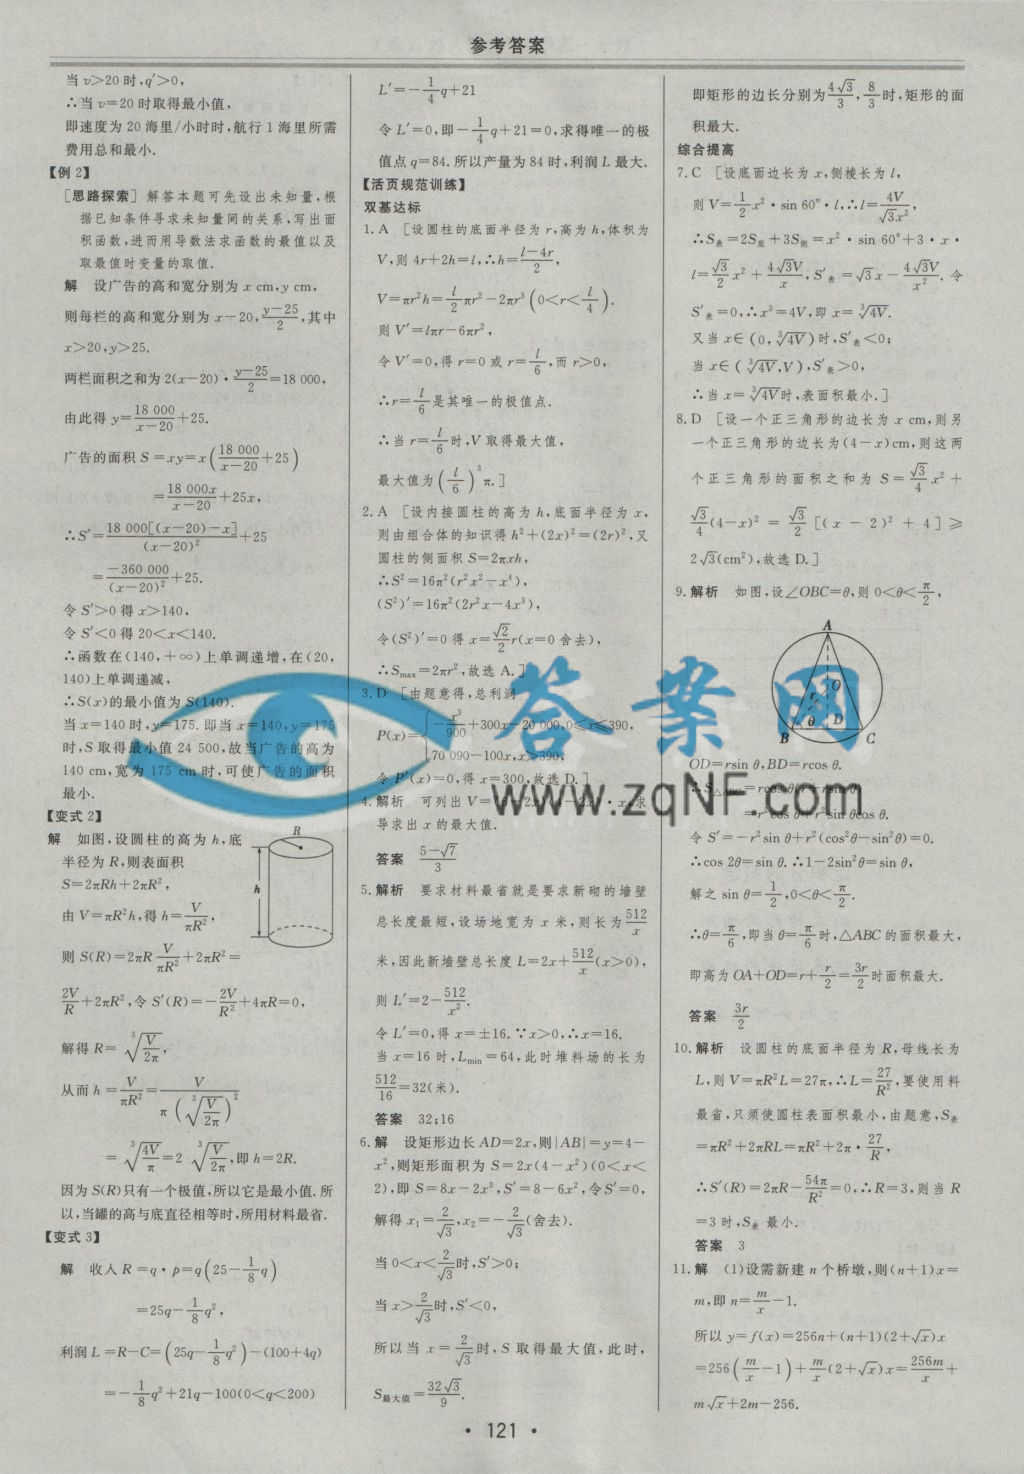 参考答案
当 v>20 时,q′>0,
∴当 v=20 时取得最小值,
即速度为 20 海里/小时时,航行 1 海里所需
费用总和最小.
【例 2】
[思路探索] 解答本题可先设出未知量,根
据已知条件寻求未知量间的关系,写出面
积函数,进而用导数法求函数的最值以及
取最值时变量的取值.
解 设广告的高和宽分别为 x cm,y cm,
则每栏的高和宽分别为 x-20,(y-25)/2,其中
x>20,y>25.
两栏面积之和为 2(x-20)·(y-25)/2=18 000,
由此得 y=18 000/(x-20)+25.
广告的面积 S=xy=x(18 000/(x-20)+25)
=18 000x/(x-20)+25x,
∴S′=18 000[(x-20)-x]/(x-20)²+25
=-360 000/(x-20)²+25.
令 S′>0 得 x>140,
令 S′<0 得 20<x<140.
∴函数在(140,+∞)上单调递增,在(20,
140)上单调递减,
∴S(x)的最小值为 S(140).
当 x=140 时,y=175.即当 x=140,y=175
时,S 取得最小值 24 500,故当广告的高为
140 cm,宽为 175 cm 时,可使广告的面积
最小.
【变式 2】
解 如图,设圆柱的高为 h,底
半径为 R,则表面积
S=2πRh+2πR²,
由 V=πR²h,得 h=V/πR²,
则 S(R)=2πR V/πR²+2πR²=
2V/R+2πR²,令 S′(R)=-2V/R²+4πR=0,
解得 R=³√(V/2π),
从而 h=V/πR²=V/π(³√(V/2π))²
=³√(4V/π)=2 ³√(V/2π),即 h=2R.
因为 S(R)只有一个极值,所以它是最小值.所
以,当罐的高与底直径相等时,所用材料最省.
R
h
【变式 3】
解 收入 R=q·p=q(25-1/8 q)
=25q-1/8 q²,
利润 L=R-C=(25q-1/8 q²)-(100+4q)
=-1/8 q²+21q-100(0<q<200)
L′=-1/4 q+21
令 L′=0,即-1/4 q+21=0,求得唯一的极
值点 q=84.所以产量为 84 时,利润 L 最大.
【活页规范训练】
双基达标
1.A [设圆柱的底面半径为 r,高为 h,体积为
V,则 4r+2h=l,∴h=(l-4r)/2,
V=πr²h=l/2 πr²-2πr³(0<r<l/4).
则 V′=lπr-6πr²,
令 V′=0,得 r=0 或 r=l/6,而 r>0,
∴r=l/6是其唯一的极值点.
∴当 r=l/6时,V 取得最大值,
最大值为(l/6)³π.]
2.A [设内接圆柱的高为 h,底面半径为 x,
则由组合体的知识得 h²+(2x)²=(2r)²,又
圆柱的侧面积 S=2πxh,
∴S²=16π²(r²x²-x⁴),
(S²)′=16π²(2r²x-4x³),
令(S²)′=0 得 x=√2/2 r(x=0 舍去),
∴Smax=2πr²,故选 A.]
3.D [由题意得,总利润
P(x)={-x³/900+300x-20 000,0≤x≤390,
70 090-100x,x>390,
令 P′(x)=0,得 x=300,故选 D.]
4.解析 可列出 V=(6-2x)(4-2x)·x,求
导求出 x 的最大值.
答案 (5-√7)/3
5.解析 要求材料最省就是要求新砌的墙壁
总长度最短,设场地宽为 x 米,则长为512/x
米,因此新墙壁总长度 L=2x+512/x(x>0),
则 L′=2-512/x².
令 L′=0,得 x=±16.∵x>0,∴x=16.
当 x=16 时,Lmin=64,此时堆料场的长为
512/16=32(米).
答案 32;16
6.解 设矩形边长 AD=2x,则|AB|=y=4-
x²,则矩形面积为 S=2x(4-x²)(0<x<
2),即 S=8x-2x³,S′=8-6x²,令S′=0,
解得 x₁=2/√3,x₂=-2/√3(舍去).
当 0<x<2/√3时,S′>0;
当 x>2/√3时,S′<0,
所以当 x=2/√3时,S 取得最大值,此时,
S最大值=32√3/9.
即矩形的边长分别为4√3/3,8/3时,矩形的面
积最大.
综合提高
7.C [设底面边长为 x,侧棱长为 l,
则 V=1/2 x²·sin 60°·l,∴l=4V/√3x²,
∴S表=2S底+3S侧=x²·sin 60°+3·x·
l=√3/2 x²+4√3V/x,S′表=√3x-4√3V/x².令
S′表=0,∴x³=4V,即 x=³√4V.
又当 x∈(0,³√4V)时,S′表<0;
当 x∈(³√4V,V),S′表>0,
∴当 x=³√4V时,表面积最小.]
8.D [设一个正三角形的边长为 x cm,则另
一个正三角形的边长为(4-x)cm,则这两
个正三角形的面积之和为 S=√3/4 x²+
√3/4(4-x)²=√3/2[(x-2)²+4]≥
2√3(cm²),故选 D.]
9.解析 如图,设∠OBC=θ,则 0<θ<π/2,
A
O
r
θ
D
B
C
OD=rsin θ,BD=rcos θ.
∴S△ABC=rcos θ(r+rsin θ)
=r²cos θ+r²sin θcos θ.
令 S′=-r²sin θ+r²(cos²θ-sin²θ)=0.
∴cos 2θ=sin θ.∴1-2sin²θ=sin θ,
解之 sin θ=1/2,0<θ<π/2.
∴θ=π/6,即当 θ=π/6时,△ABC的面积最大,
即高为 OA+OD=r+r/2=3r/2时面积最大.
答案 3r/2
10.解析 设圆柱的底面半径为 R,母线长为
L,则 V=πR²L=27π,∴L=27/R²,要使用料
最省,只须使圆柱表面积最小,由题意,S表
=πR²+2πRL=πR²+2π·27/R,
∴S′(R)=2πR-54π/R²=0,∴R=3,则当 R
=3 时,S表 最小.
答案 3
11.解 (1)设需新建 n 个桥墩,则(n+1)x=
m,即 n=m/x-1.
所以 y=f(x)=256n+(n+1)(2+√x)x
=256(m/x-1)+m/x(2+√x)x=256m/x+
m√x+2m-256.
答案网
www.zqNF.com
·121·